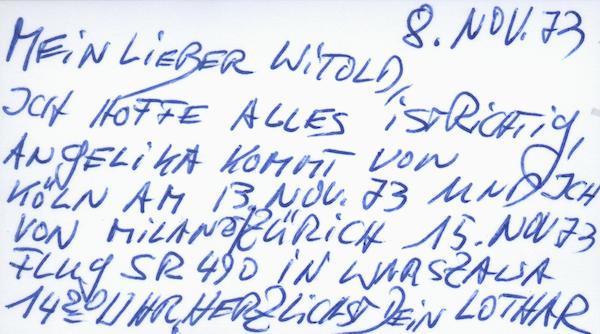 8. NOV. 73
MEIN LIEBER WITOLD,
ICH HOFFE ALLES IST RICHTIG,
ANGELIKA KOMMT VON
KÖLN AM 13. NOV. 73 UND ICH
VON MILANO/ZÜRICH 15. NOV 73
FLUG SR 490 IN WARSZAWA
14 20 UHR, HERZLICHST DEIN LOTHAR